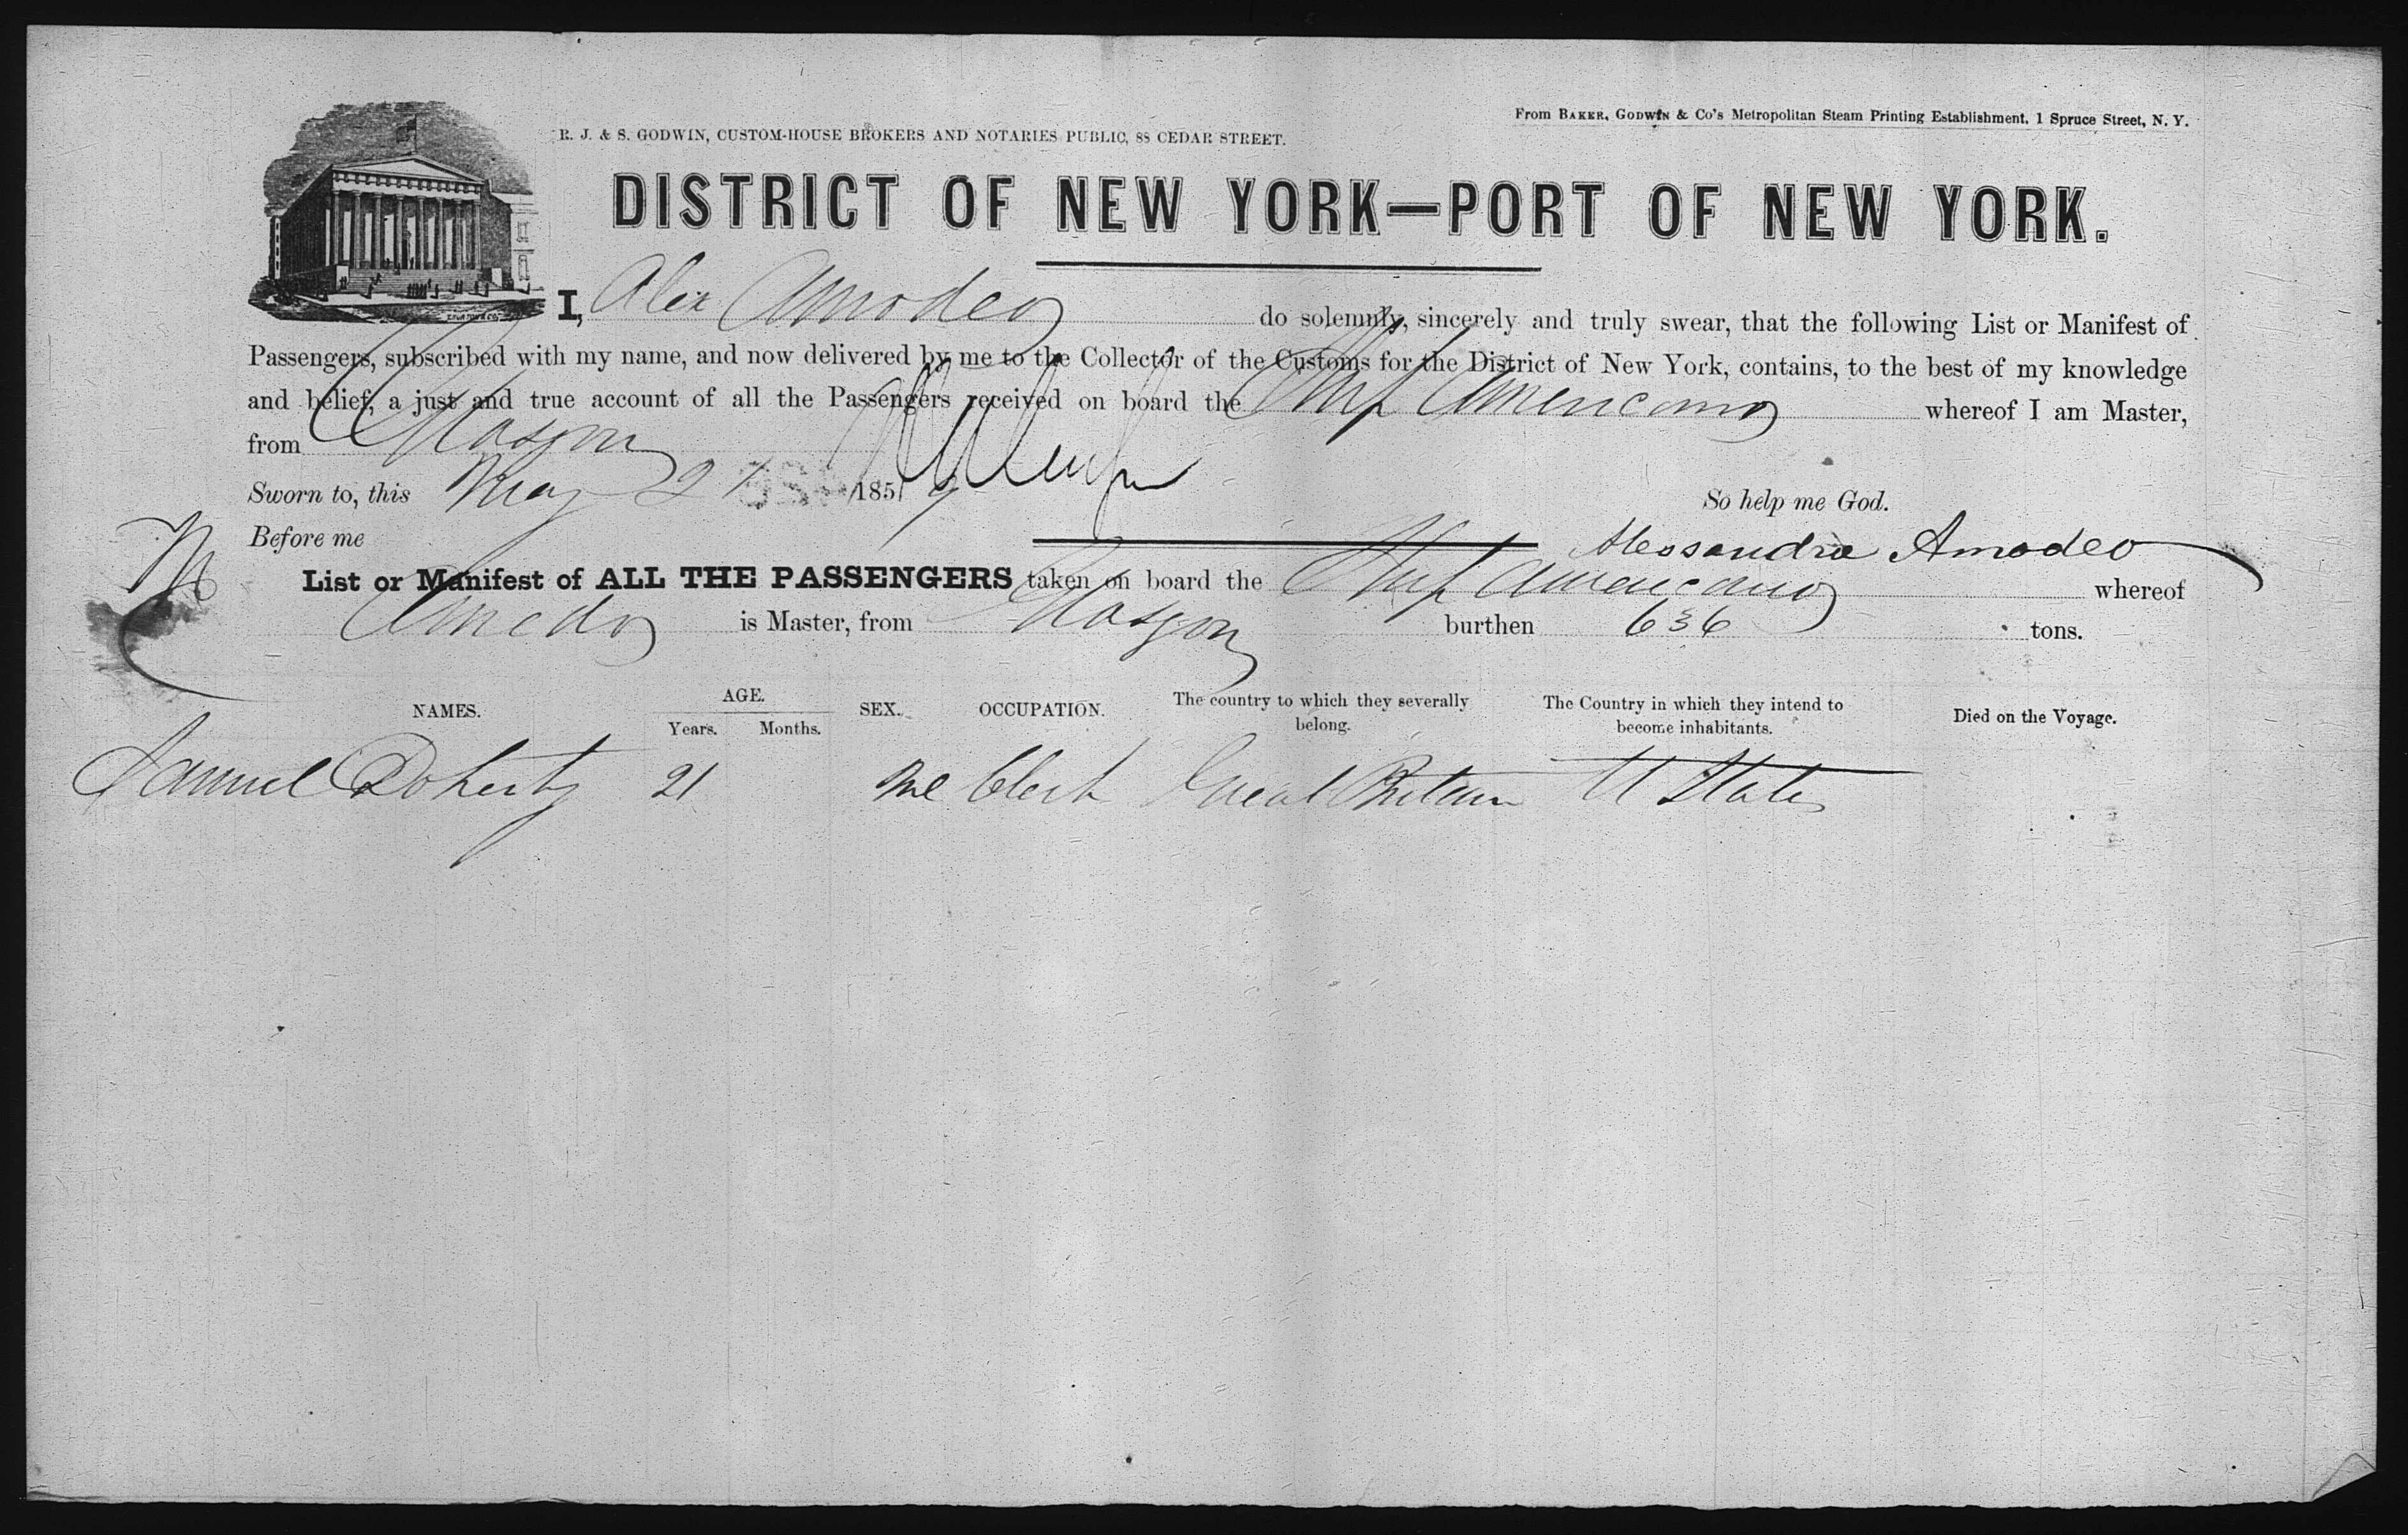 R. J. & S. GODWIN, CUSTOM-HOUSE BROKERS AND NOTARIES PUBLIC, 88 CEDAR STREET.
From BAKER, GODWIN & Co's Metropolitan Steam Printing Establishment, 1 Spruce Street, N. Y.
DISTRICT OF NEW YORK—PORT OF NEW YORK.
I, Alex Amodeo do solemnly, sincerely and truly swear, that the following List or Manifest of
Passengers, subscribed with my name, and now delivered by me to the Collector of the Customs for the District of New York, contains, to the best of my knowledge
and belief, a just and true account of all the Passengers received on board the Ship Americano whereof I am Master,
from Glasgow
Sworn to, this May 27 1859
So help me God.
Before me
Alessandro Amodeo
List or Manifest of ALL THE PASSENGERS taken on board the Ship Americano whereof
Amedo is Master, from Glasgow burthen 636 tons.
NAMES. AGE. Years. Months. SEX. OCCUPATION. The country to which they severally belong. The Country in which they intend to become inhabitants. Died on the Voyage.
Samuel Doherty 21 Me Clerk Great Britain U States